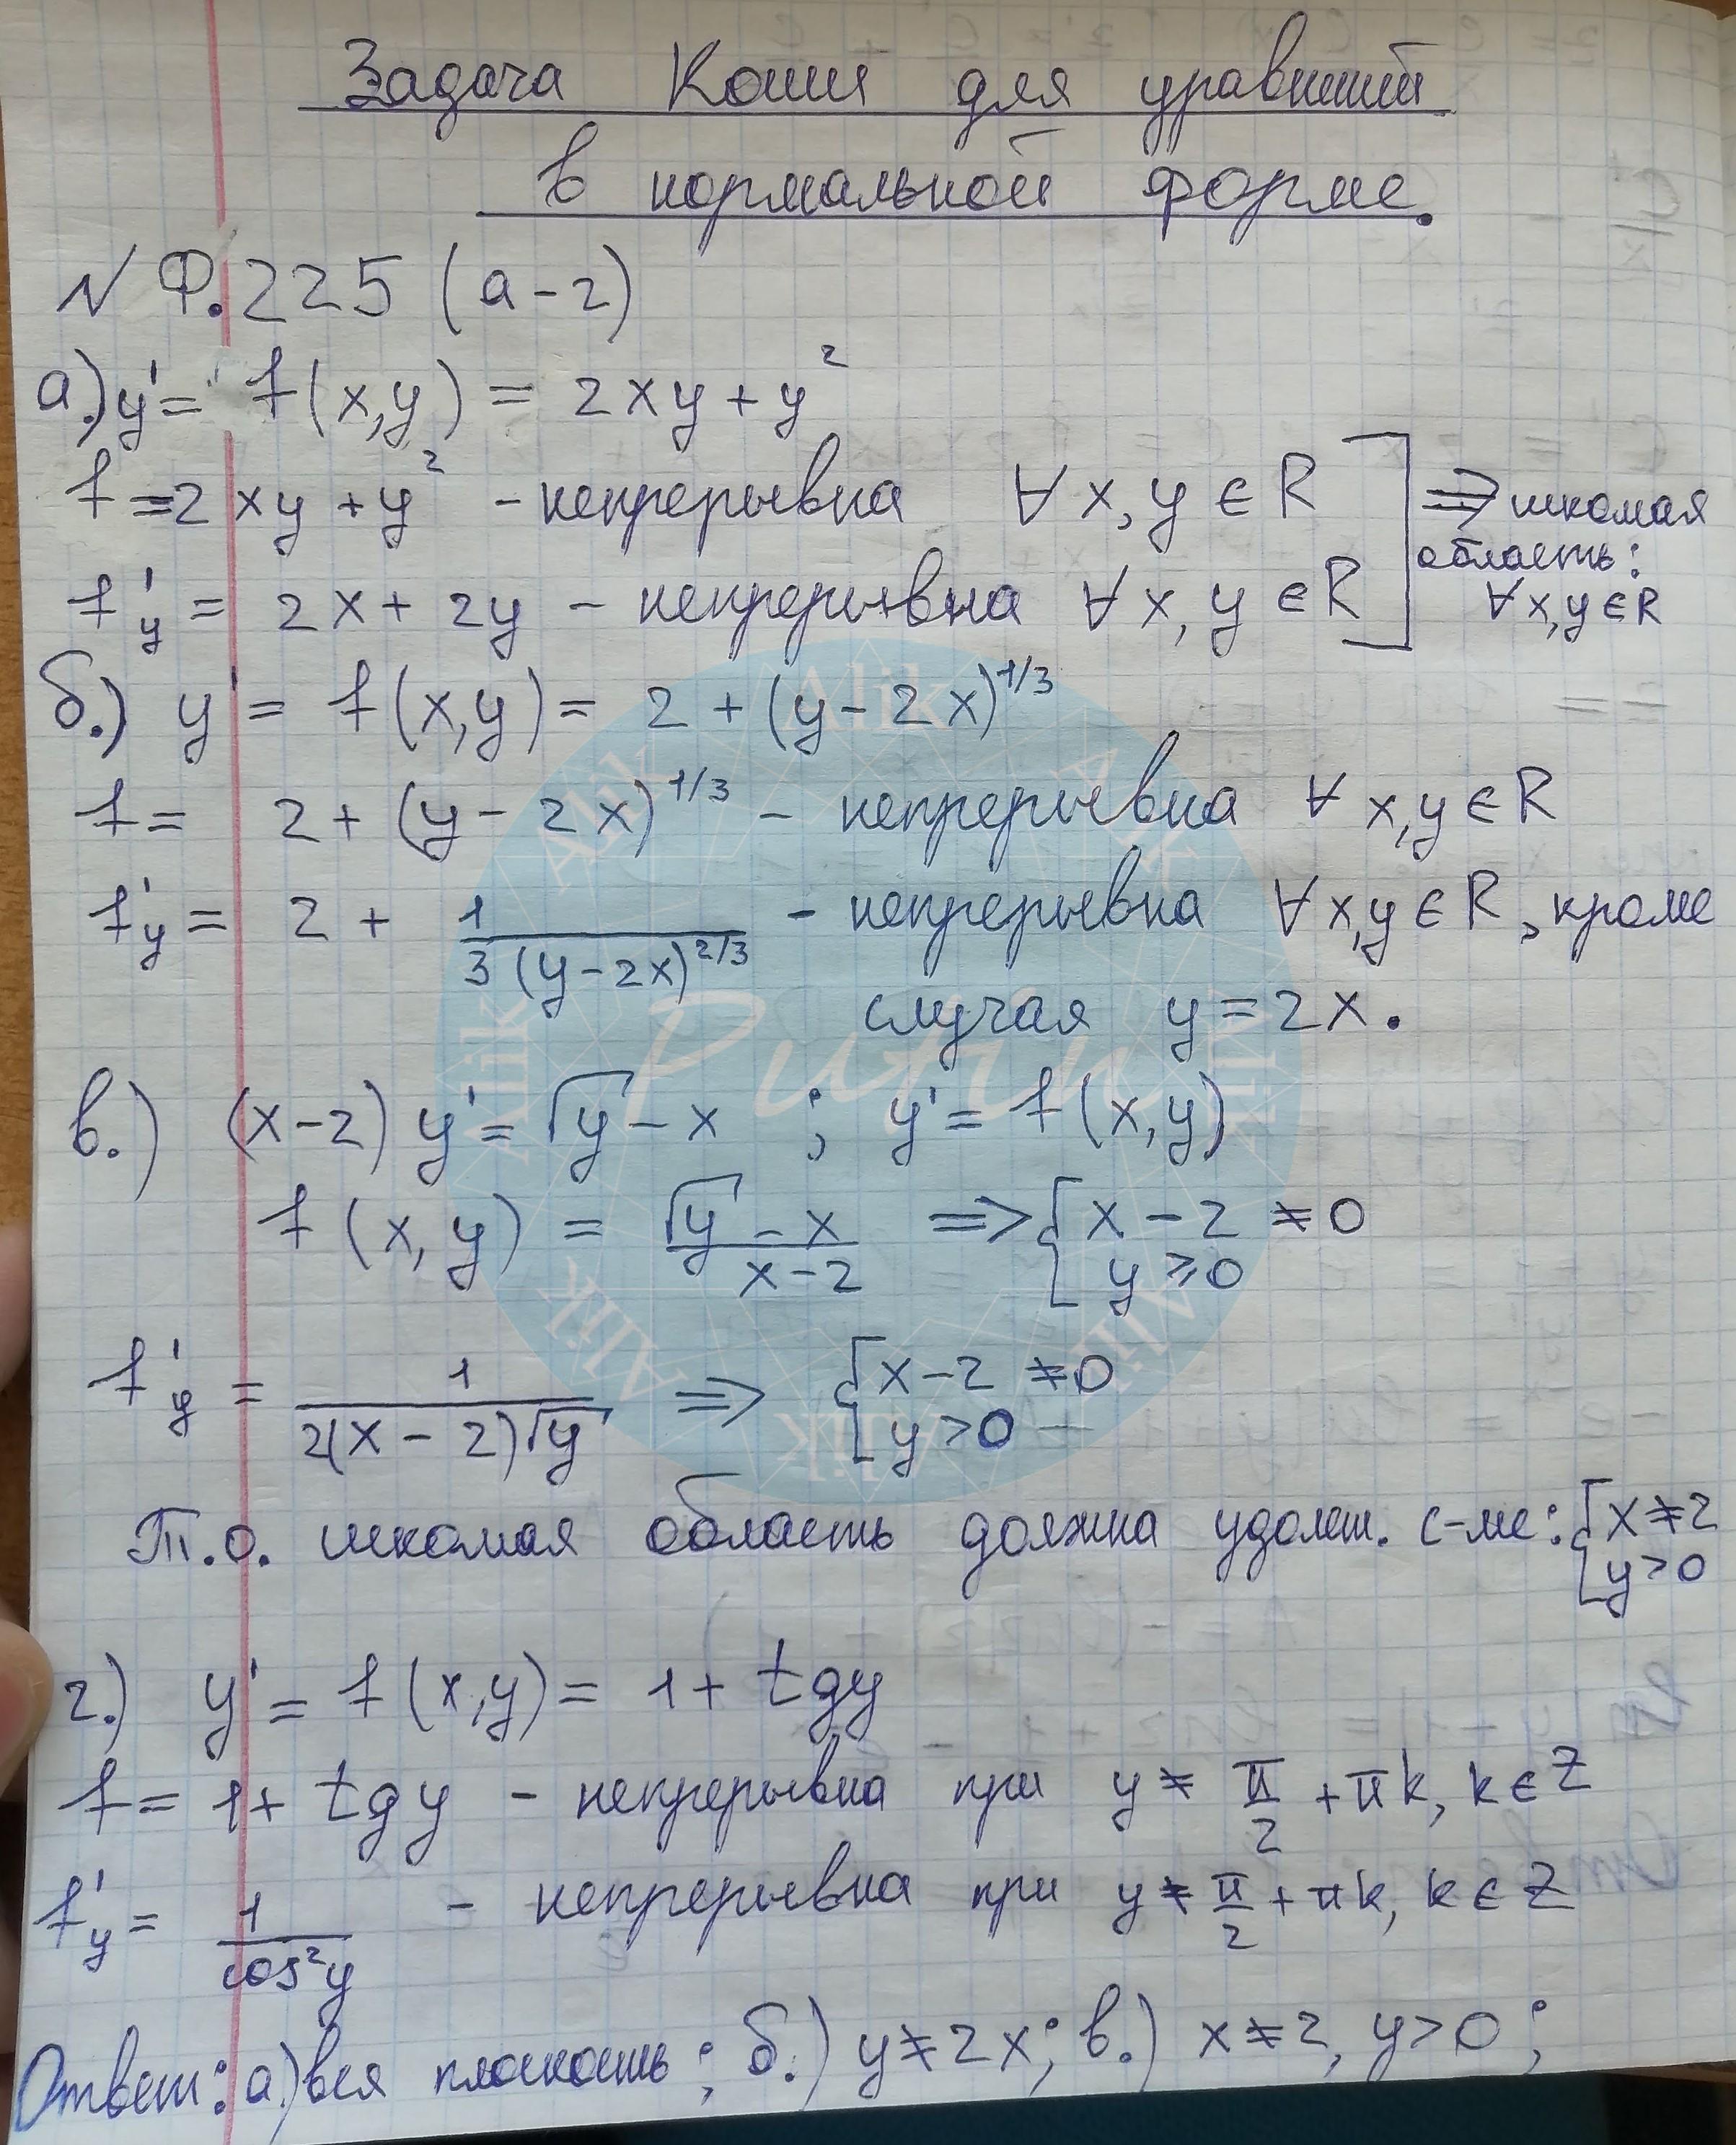 Задача Коши для уравнений
в нормальной форме.
N Ф.225 (а-г)
а.) y' = f(x,y) = 2xy + y²
f = 2xy + y² - непрерывна ∀x,y ∈ R
⇒ искомая
область:
f'y = 2x + 2y - непрерывна ∀x,y ∈ R
∀x,y ∈ R
б.) y' = f(x,y) = 2 + (y - 2x)^1/3
f = 2 + (y - 2x)^1/3 - непрерывна ∀ x,y ∈ R
f'y = 2 + 1/(3(y-2x)^2/3) - непрерывна ∀x,y ∈ R, кроме
случая y = 2x.
в.) (x-2) y' = √y - x ; y' = f(x,y)
f(x,y) = (√y - x)/(x-2) ⇒ { x - 2 ≠ 0
y ≥ 0
f'y = 1/(2(x-2)√y) ⇒ { x-2 ≠ 0
y > 0
Т.о. искомая область должна удовлет. с-ме: { x ≠ 2
y > 0
г.) y' = f(x,y) = 1 + tgy
f = 1 + tgy - непрерывна при y ≠ π/2 + πk, k ∈ Z
f'y = 1/cos²y - непрерывна при y ≠ π/2 + πk, k ∈ Z
Ответ: а.) вся плоскость; б.) y ≠ 2x; в.) x ≠ 2, y > 0;
Alik Alik Alik Alik Alik Alik Alik Alik
Putin